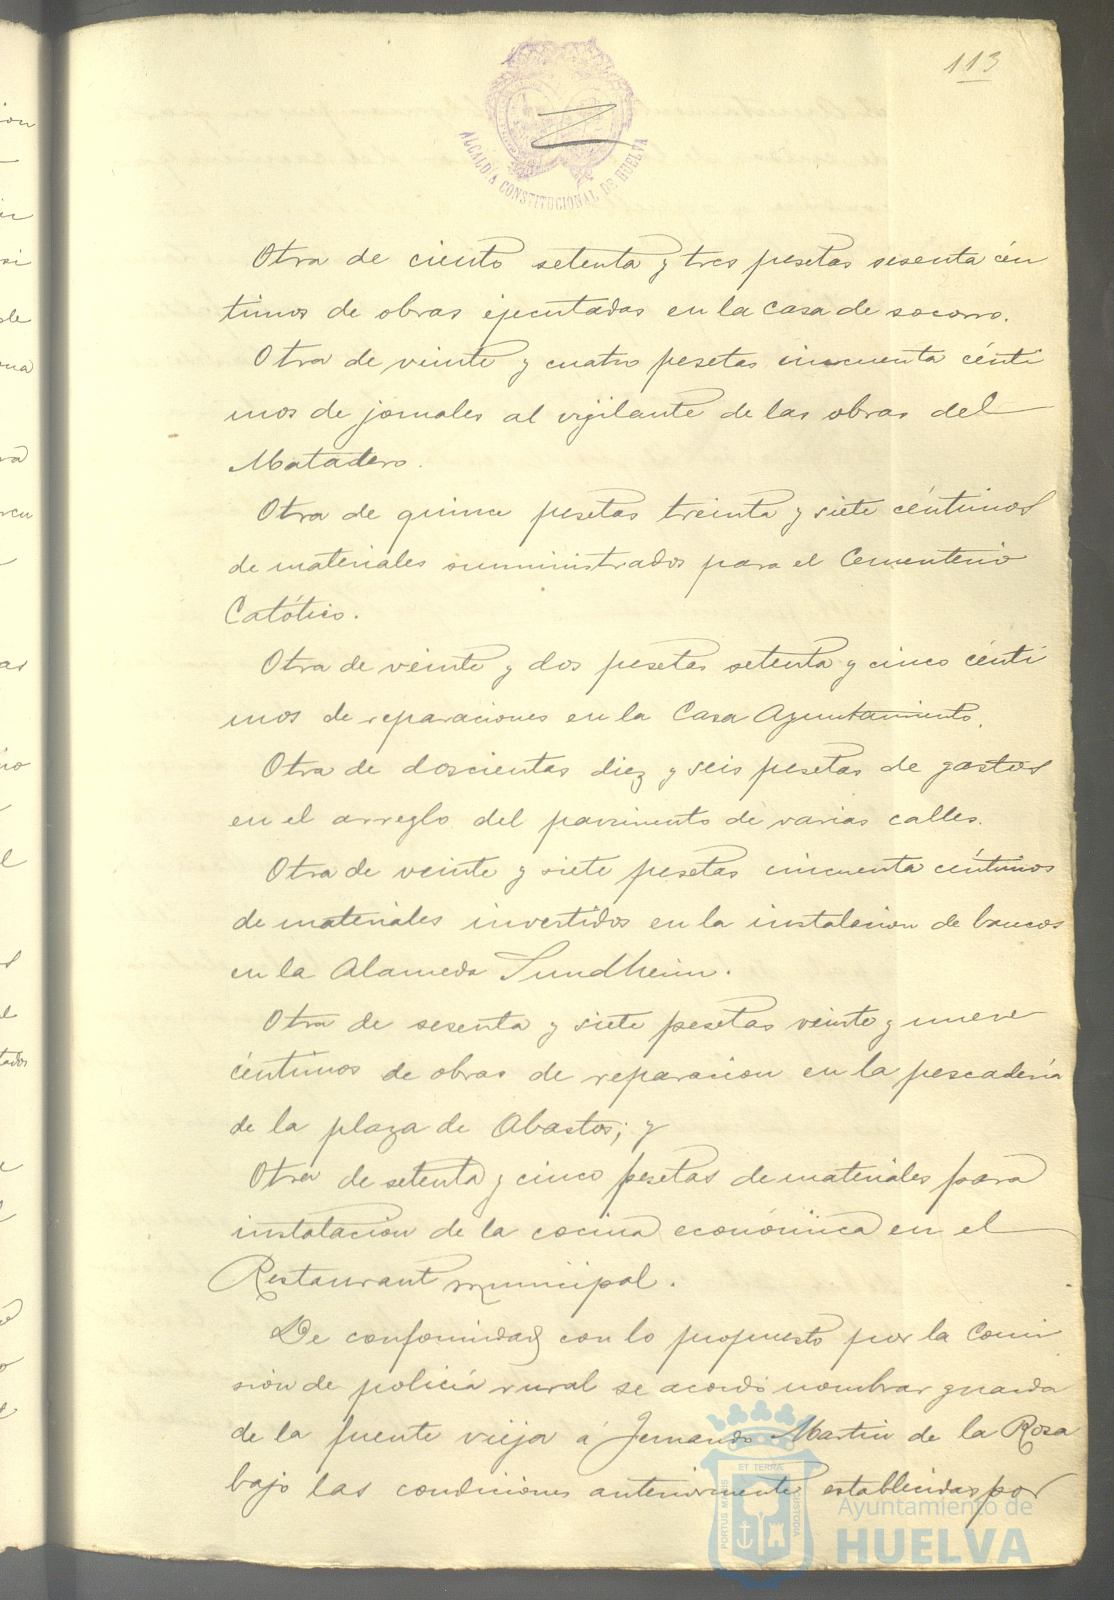 113
ALCALDÍA CONSTITUCIONAL DE HUELVA
Otra de ciento setenta y tres pesetas sesenta cén
timos de obras ejecutadas en la casa de socorro.
Otra de veinte y cuatro pesetas cincuenta cénti
mos de jornales al vigilante de las obras del
Matadero.
Otra de quince pesetas treinta y siete céntimos
de materiales suministrados para el Cementerio
Católico.
Otra de veinte y dos pesetas setenta y cinco cénti
mos de reparaciones en la Casa Ayuntamiento.
Otra de doscientas diez y seis pesetas de gastos
en el arreglo del pavimento de varias calles.
Otra de veinte y siete pesetas cincuenta céntimos
de materiales invertidos en la instalacion de bancos
en la Alameda Sundheim.
Otra de sesenta y siete pesetas veinte y nueve
céntimos de obras de reparacion en la pescadería
de la plaza de Abastos; y
Otra de setenta y cinco pesetas de materiales para
instalacion de la cocina económica en el
Restaurant municipal.
De conformidad con lo propuesto por la Comi
sión de policía rural se acordó nombrar guarda
de la fuente vieja á Fernando Martin de la Rosa
bajo las condiciones anteriormente establecidas por
ET TERRÆ
PORTUS MARIS
CUSTODIA
Ayuntamiento de
HUELVA